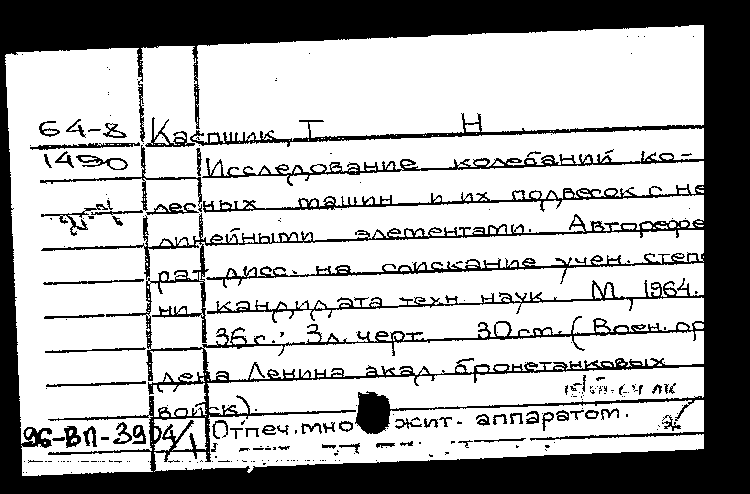 64-8 Каспшик, Т Н
1490 Исследование колебаний ко-
лесных машин и их подвесок с не
линейными элементами. Авторефе
рат дисс. на соискание учен. степе
ни кандидата техн наук. М., 1964.
36 с.; 3 л. черт. 30 cm. (Воен. ор
дена Ленина акад. бронетанковых
войск).
96-ВП-3904/1 Отпеч. мно жит. аппаратом.